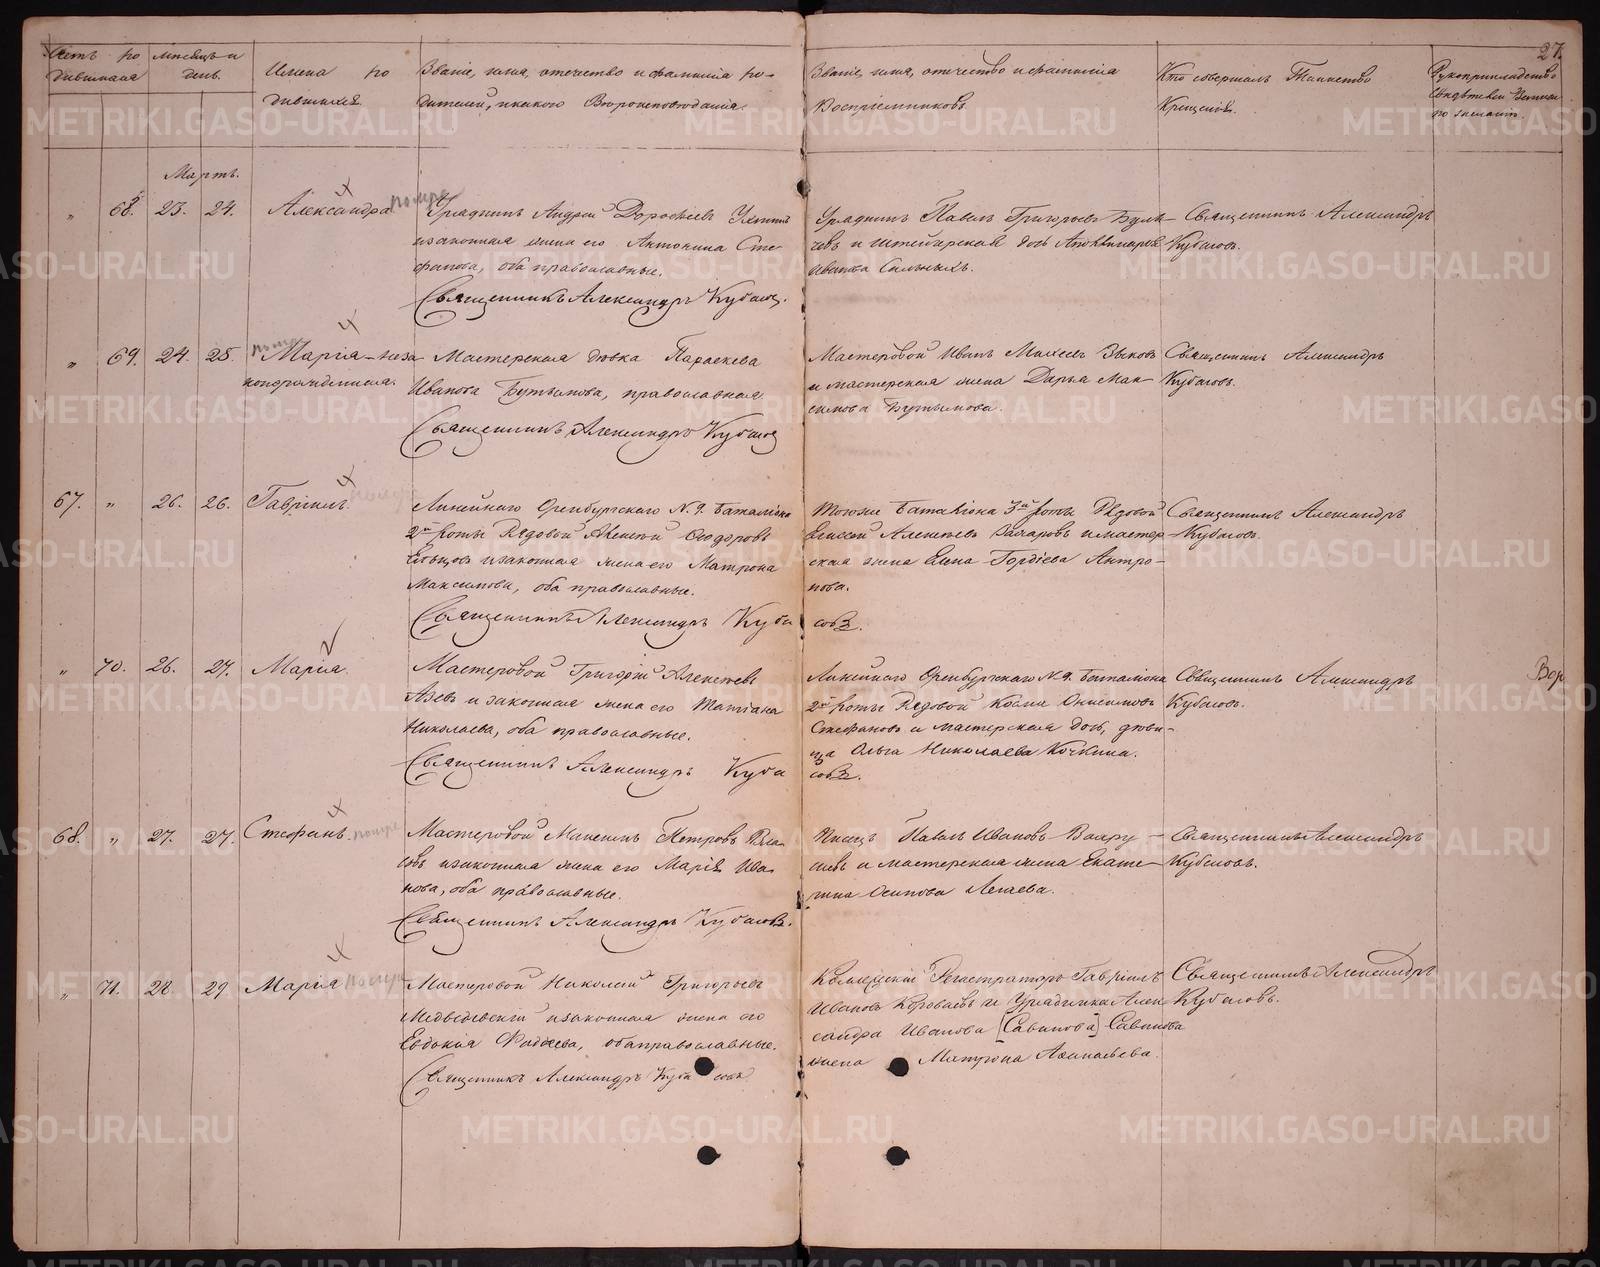 27.
Счетъ ро
дившихся
мѣсяцъ и
день.
Имена ро
дившихся.
Званіе, имя, отечество и фамилія ро-
дителей, и какого Вѣроисповѣданія.
Званіе, имя, отечество и фамилія
Воспріемниковъ.
Кто совершалъ Таинство
Крещенія.
Рукоприкладство
свидѣтелей записи
по желанію.
Мартъ.
" 68. 23. 24. Александра померла
Урядникъ Андрей Дорофѣевъ
и законная жена его Антонина Сте-
фанова, оба православные.
Священникъ Александръ Кубасовъ.
Урядникъ Павелъ Григорьевъ
и дочь
Священникъ Александръ
Кубасовъ.
" 69. 24. 25. Марія-неза-
коннорожденная.
Мастерская дѣвка Параскева
Иванова православная
Священникъ Александръ Кубасовъ
Мастеровой Иванъ Зыковъ
и мастерская жена Дарья Мак-
симова
Священникъ Александръ
Кубасовъ.
67. " 26. 26. Гавріилъ.
Линейнаго Оренбургскаго N. 9. Баталіона
2й роты Рядовой Алексѣй Ѳеодоровъ
и законная жена его Матрона
Максимова, оба православные.
Священникъ Александръ Куба
совъ.
Тогоже Баталіона 3й роты Рядовой
Елисей Алексѣевъ Захаровъ и мастер-
ская жена Елена Гордіева Антро-
пова.
Священникъ Александръ
Кубасовъ.
" 70. 26. 27. Марія.
Мастеровой Григорій Алексѣевъ
и законная жена его Татіана
Николаева, оба православные.
Священникъ Александръ Куба
совъ.
Линейнаго Оренбургскаго N. 9. Баталіона
2й роты Рядовой Косма Онисимовъ
Стефановъ и мастерская дочь, дѣви-
ца Ольга Николаева Кочкина.
Священникъ Александръ
Кубасовъ.
68. " 27. 27. Стефанъ. померъ
Мастеровой Максимъ Петровъ Вла-
совъ и законная жена его Марія Ива-
нова, оба православные.
Священникъ Александръ Кубасовъ.
Писецъ Павелъ Ивановъ
и мастерская жена Екате-
рина Осипова
Священникъ Александръ
Кубасовъ.
" 71. 28 29 Марія
Мастеровой Николай Григорьевъ
Медвѣдевскій и законная жена его
Евдокія Фаддѣева, оба православные.
Священникъ Александръ Куба совъ
Коллежскій Регистраторъ Гавріилъ
Ивановъ Короваевъ и Урядника Алек
сандра Иванова [Савинова] Савинова
жена Матрона Аѳанасьева.
Священникъ Александръ
Кубасовъ.
METRIKI.GASO-URAL.RU